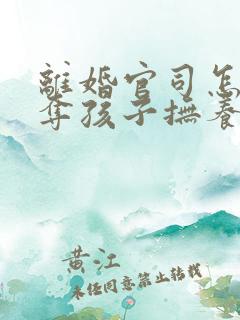 離婚官司怎
奪孩子撫養
黄江
未经同意禁止转载